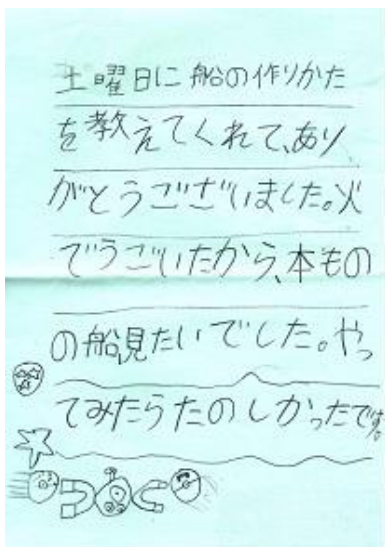 土曜日に船の作りかた
を教えてくれて、あり
がとうございました。火
でうごいたから、本もの
の船見たいでした。やっ
てみたらたのしかったです。